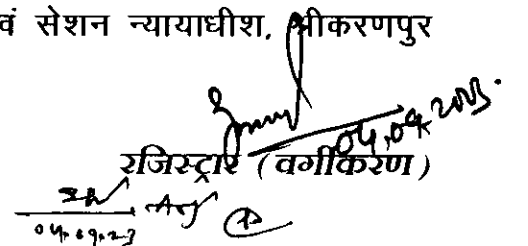 वं सेशन न्यायाधीश, श्रीकरणपुर
04.09.2023.
रजिस्ट्रार (वर्गीकरण)
04.09.23